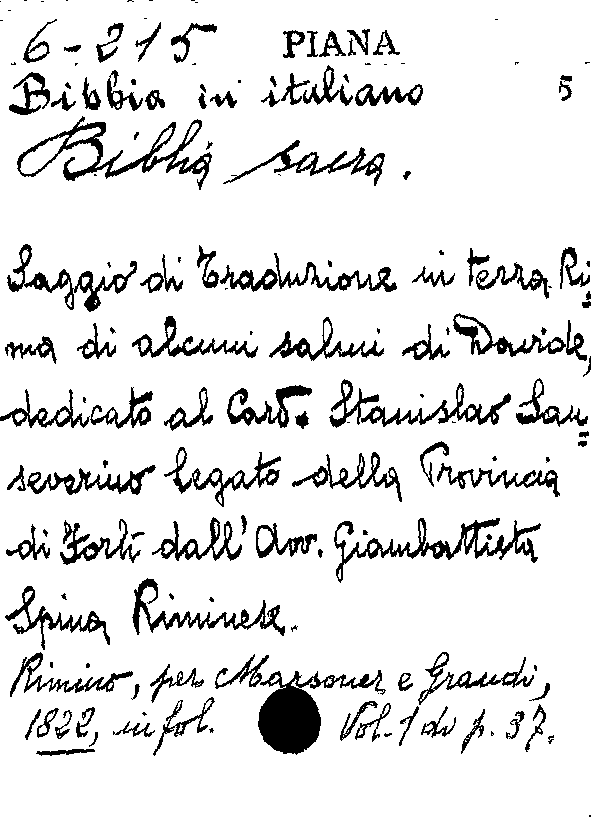 6-215 PIANA
Bibbia in italiano 5
Biblia sacra.
Saggio di Traduzione in terza Ri=
ma di alcuni salmi di Davide,
dedicato al Card. Stanislao San=
severino Legato della Provincia
di Forlì dall'Avv. Giambattista
Spina Riminese.
Rimino, per Marsoner e Grandi,
1822, in fol. Vol. 1 di p. 37.